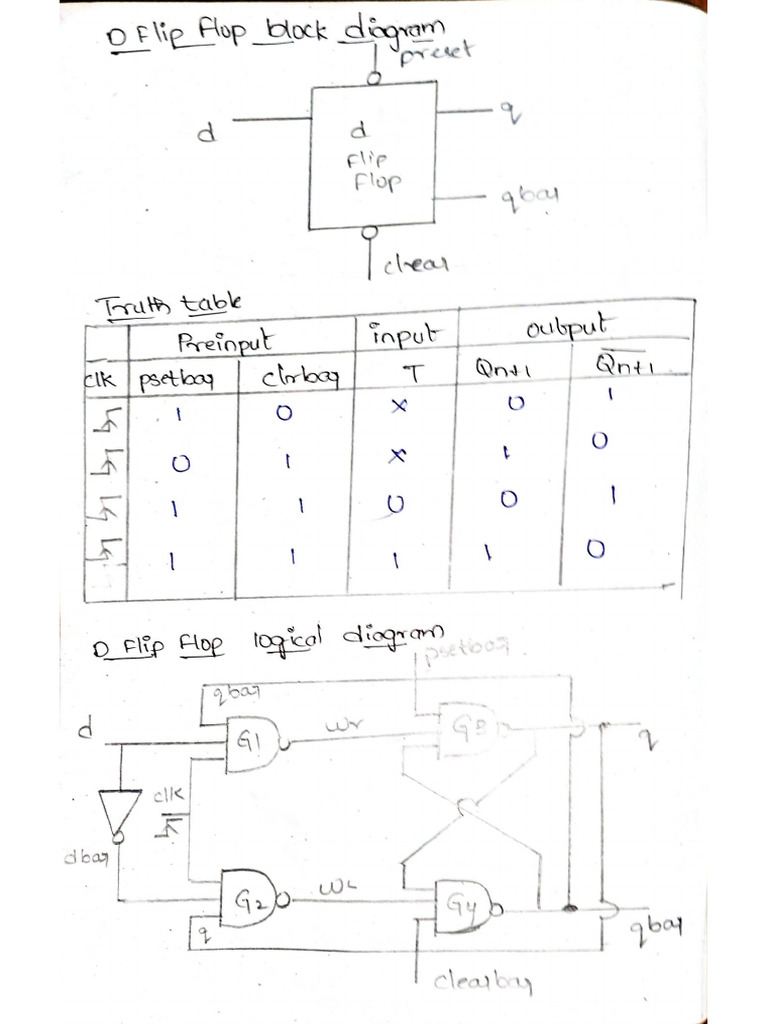 D Flip Flop block diagram
preset
d
q
d
Flip
Flop
qbar
clear
Truth table
Preinput input output
clk psetbar clrbar T Qn+1 Q̅n+1
1 0 x 0 1
0 1 x 1 0
1 1 0 0 1
1 1 1 1 0
D Flip Flop logical diagram
psetbar
qbar
d
G1
wr
G3
q
clk
dbar
G2
wL
G4
q
qbar
clearbar